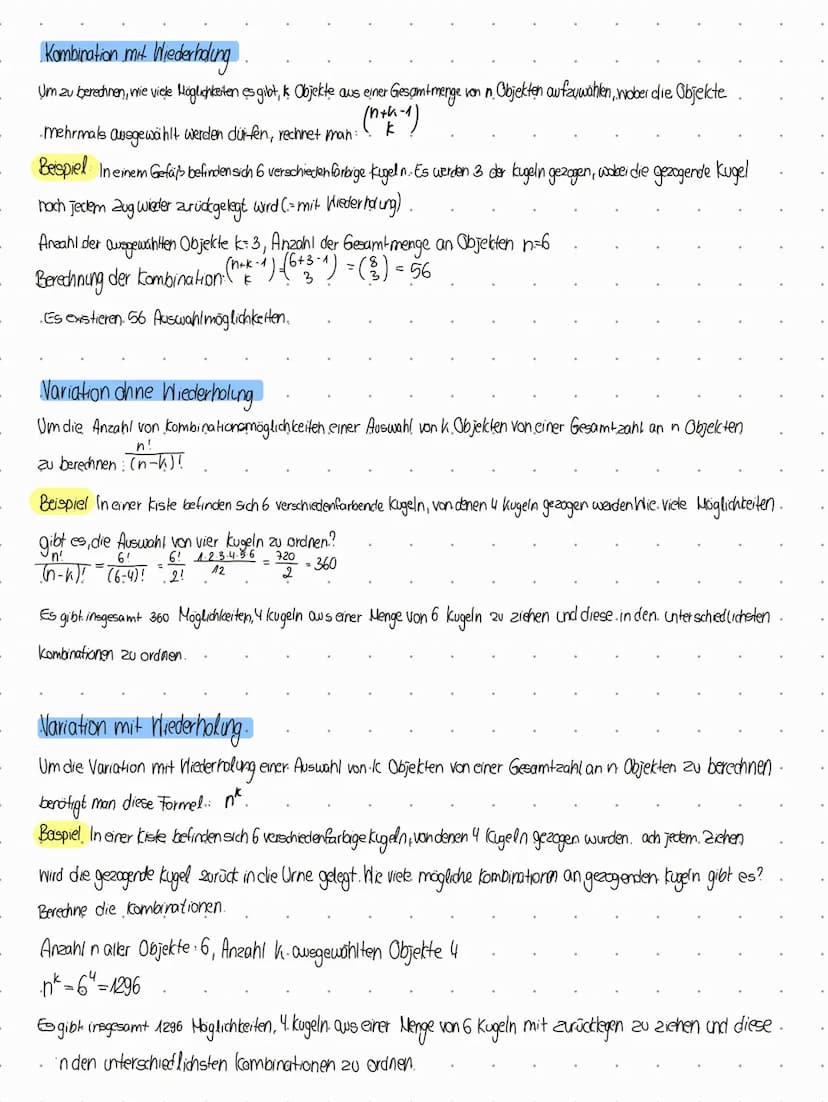 Kombination mit Wiederholung
Um zu berechnen, wie viele Möglichkeiten es gibt, k Objekte aus einer Gesamtmenge von n Objekten aufzuwählen, wobei die Objekte
mehrmals ausgewählt werden dürfen, rechnet man: (n+k-1 k)
Beispiel: In einem Gefäß befinden sich 6 verschiedenfarbige Kugeln. Es werden 3 der Kugeln gezogen, wobei die gezogende Kugel
nach jedem Zug wieder zurückgelegt wird (= mit Wiederholung)
Anzahl der ausgewählten Objekte k=3, Anzahl der Gesamtmenge an Objekten n=6
Berechnung der Kombination: (n+k-1 k) = (6+3-1 3) = (8 3) = 56
Es existieren 56 Auswahlmöglichkeiten.
Variation ohne Wiederholung
Um die Anzahl von Kombinationsmöglichkeiten einer Auswahl von k Objekten von einer Gesamtzahl an n Objekten
zu berechnen: n!/(n-k)!
Beispiel In einer Kiste befinden sich 6 verschiedenfarbende Kugeln, von denen 4 Kugeln gezogen werden. Wie viele Möglichkeiten
gibt es, die Auswahl von vier Kugeln zu ordnen?
n!/(n-k)! = 6!/(6-4)! = 6!/2! 1·2·3·4·5·6/1·2 = 720/2 = 360
Es gibt insgesamt 360 Möglichkeiten, 4 Kugeln aus einer Menge von 6 Kugeln zu ziehen und diese in den unterschiedlichsten
Kombinationen zu ordnen.
Variation mit Wiederholung
Um die Variation mit Wiederholung einer Auswahl von k Objekten von einer Gesamtzahl an n Objekten zu berechnen
benötigt man diese Formel: n^k
Beispiel In einer Kiste befinden sich 6 verschiedenfarbige Kugeln, von denen 4 Kugeln gezogen wurden. ach jedem Ziehen
wird die gezogende Kugel zurück in die Urne gelegt. Wie viele mögliche Kombinationen an gezogenden Kugeln gibt es?
Berechne die Kombinationen.
Anzahl n aller Objekte: 6, Anzahl k ausgewählten Objekte 4
n^k = 6^4 = 1296
Es gibt insgesamt 1296 Möglichkeiten, 4 Kugeln aus einer Menge von 6 Kugeln mit zurücklegen zu ziehen und diese
n den unterschiedlichsten Kombinationen zu ordnen.